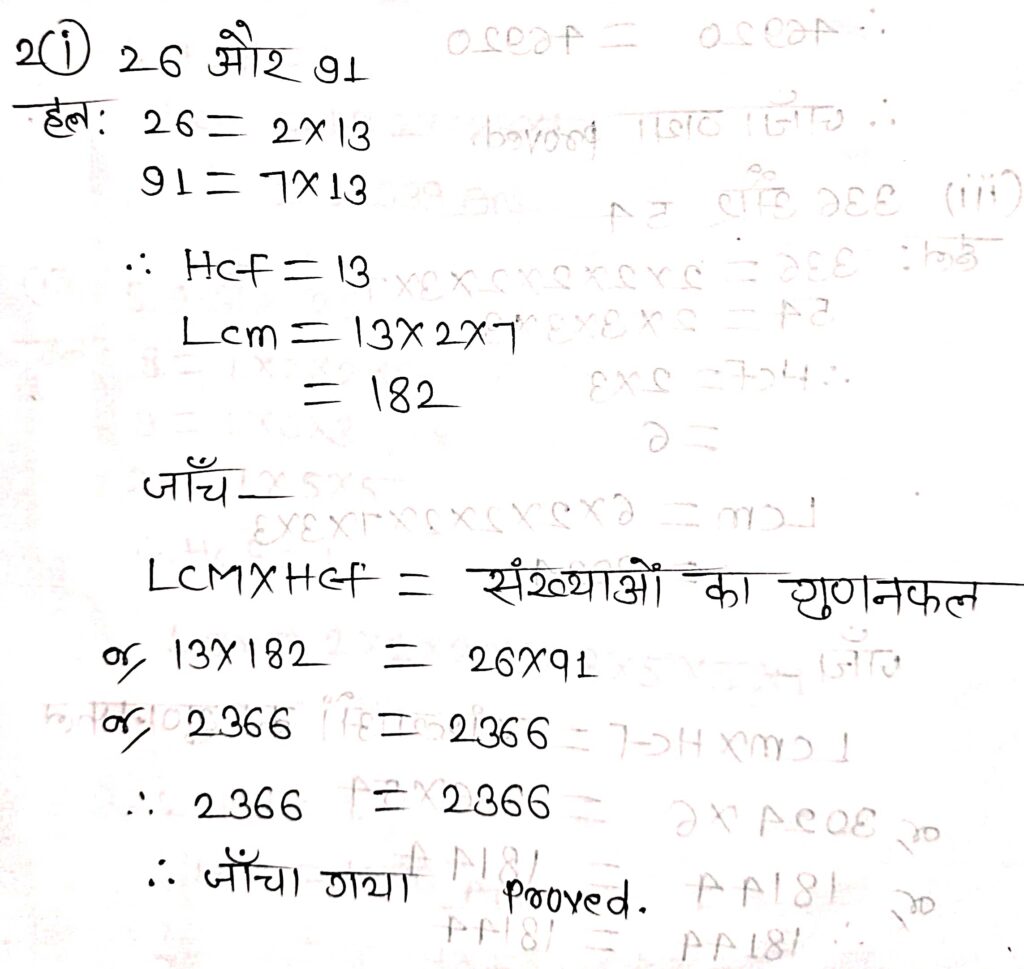 2(i) 26 और 91
हल: 26 = 2×13
91 = 7×13
∴ HCF = 13
Lcm = 13×2×7
= 182
जाँच —
LCM×HCF = संख्याओं का गुणनफल
or, 13×182 = 26×91
or, 2366 = 2366
∴ 2366 = 2366
∴ जाँचा गया proved.